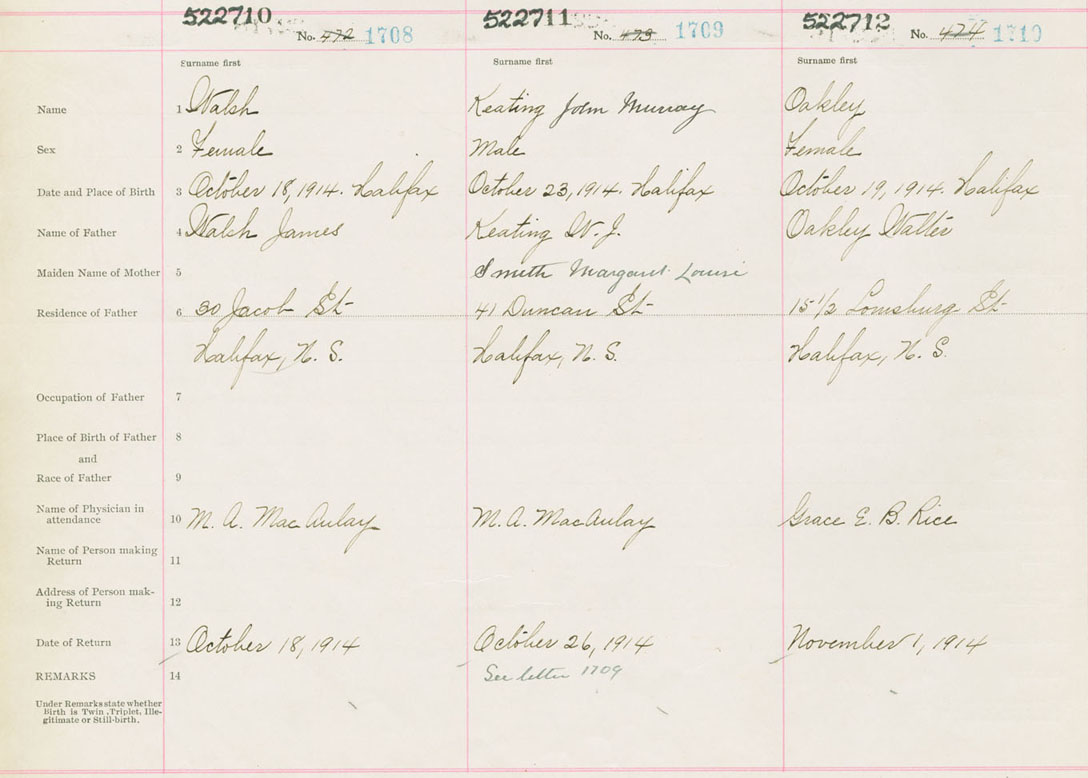 522710 522711 522712
No. 472 1708 No. 473 1709 No. 474 1710
Surname first Surname first Surname first
Name 1 Walsh Keating John Murray Oakley
Sex 2 Female Male Female
Date and Place of Birth 3 October 18, 1914. Halifax October 23, 1914. Halifax October 19, 1914. Halifax
Name of Father 4 Walsh James Keating W. J. Oakley Walter
Maiden Name of Mother 5 Smith Margaret Louise
Residence of Father 6 30 Jacob St 41 Duncan St 15 1/2 Louisburg St
Halifax, N. S. Halifax, N. S. Halifax, N. S.
Occupation of Father 7
Place of Birth of Father 8
and
Race of Father 9
Name of Physician in
attendance 10 M. A. MacAulay M. A. MacAulay Grace E. B. Rice
Name of Person making
Return 11
Address of Person mak-
ing Return 12
Date of Return 13 October 18, 1914 October 26, 1914 November 1, 1914
REMARKS 14 See letter 1709
Under Remarks state whether
Birth is Twin, Triplet, Ille-
gitimate or Still-birth.